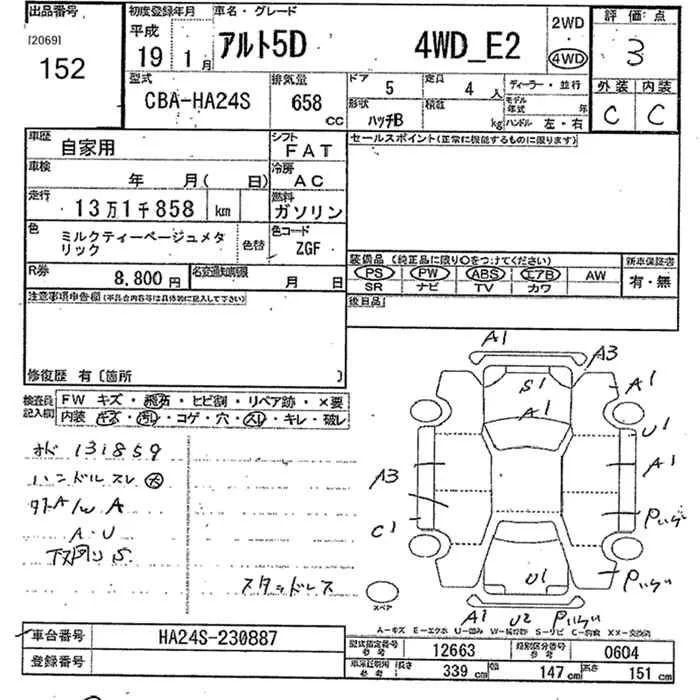 出品番号
[2069]
152
初度登録年月
平成
19年 1月
車名・グレード
アルト5D 4WD_E2
2WD
4WD
評価点
3
外装 内装
C C
型式
CBA-HA24S
排気量
658
CC
ドア
5
定員
4 人
形状
ハッチB
積載
kg
ディーラー・並行
モデル年式 年
ハンドル 左・右
車歴
自家用
シフト
FAT
車検
年 月( 日)
冷房
AC
走行
13万1千858 km
燃料
ガソリン
色
ミルクティーベージュメタ
リック
色替
色コード
ZGF
R券
8,800円
名変通知期限
月 日
セールスポイント(正常に機能するものに限ります)
装備品(純正品に限り○をつけてください)
PS PW ABS エアB AW
SR ナビ TV カワ
新車保証書
有・無
後日品
注意事項申告欄(車具合内容等は具体的に記入して下さい)
修復歴 有〔箇所 〕
検査員記入欄
FW キズ・飛石・ヒビ割・リペア跡・×要
内装・キズ・汚れ・コゲ・穴・スレ・キレ・破レ
131859
ハンドルスレ
A
A・U
スタッドレス
A1
A3
S1
A1
A1
U1
A1
A3
C1
U1
A1
U2
スペア
A-キズ E-エクボ U-凹み S-サビ C-腐食
車台番号
HA24S-230887
登録番号
型式指定番号
参考
12663
類別区分番号
参考
0604
長さ
339 cm
幅
147 cm
高さ
151 cm